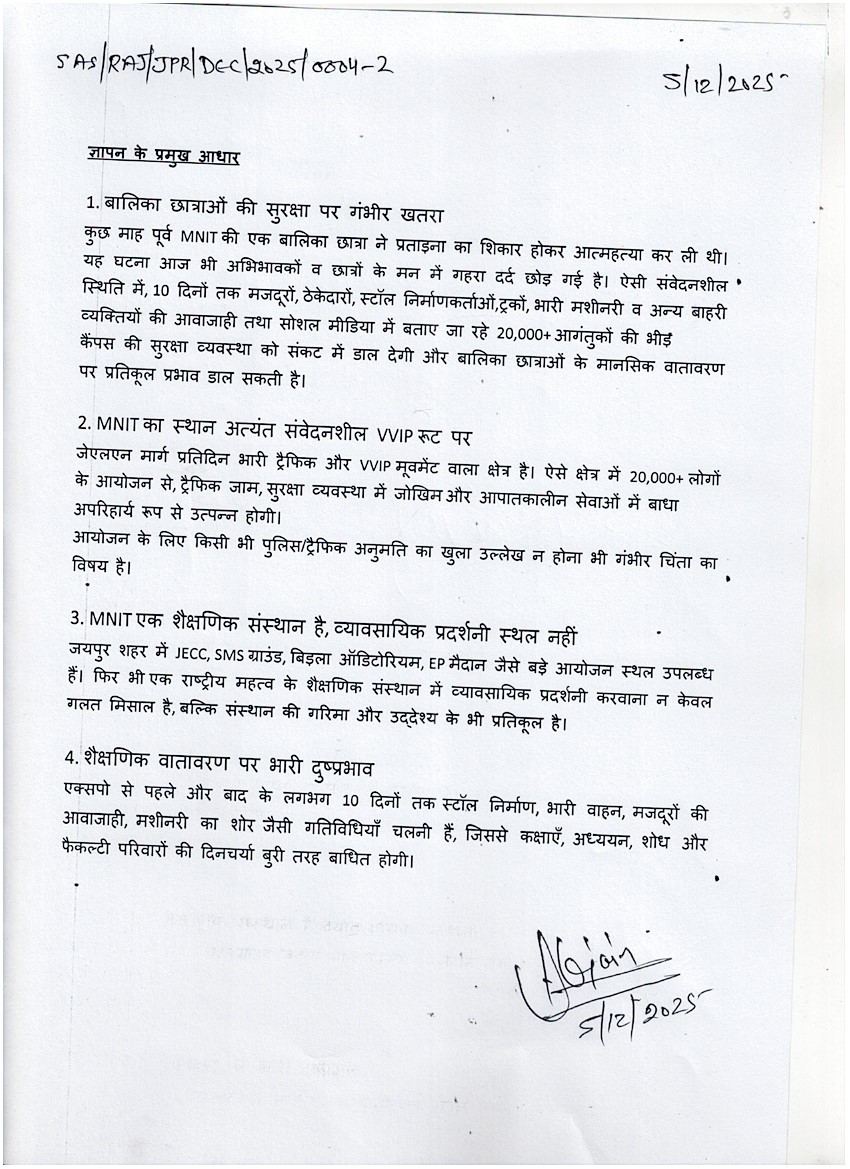 SAS/RAJ/JPR/DEC/2025/0004-2
5/12/2025
ज्ञापन के प्रमुख आधार
1. बालिका छात्राओं की सुरक्षा पर गंभीर खतरा
कुछ माह पूर्व MNIT की एक बालिका छात्रा ने प्रताड़ना का शिकार होकर आत्महत्या कर ली थी।
यह घटना आज भी अभिभावकों व छात्रों के मन में गहरा दर्द छोड़ गई है। ऐसी संवेदनशील
स्थिति में, 10 दिनों तक मजदूरों, ठेकेदारों, स्टॉल निर्माणकर्ताओं,ट्रकों, भारी मशीनरी व अन्य बाहरी
व्यक्तियों की आवाजाही तथा सोशल मीडिया में बताए जा रहे 20,000+ आगंतुकों की भीड़
कैंपस की सुरक्षा व्यवस्था को संकट में डाल देगी और बालिका छात्राओं के मानसिक वातावरण
पर प्रतिकूल प्रभाव डाल सकती है।
2. MNIT का स्थान अत्यंत संवेदनशील VVIP रूट पर
जेएलएन मार्ग प्रतिदिन भारी ट्रैफिक और VVIP मूवमेंट वाला क्षेत्र है। ऐसे क्षेत्र में 20,000+ लोगों
के आयोजन से, ट्रैफिक जाम, सुरक्षा व्यवस्था में जोखिम और आपातकालीन सेवाओं में बाधा
अपरिहार्य रूप से उत्पन्न होगी।
आयोजन के लिए किसी भी पुलिस/ट्रैफिक अनुमति का खुला उल्लेख न होना भी गंभीर चिंता का
विषय है।
3. MNIT एक शैक्षणिक संस्थान है, व्यावसायिक प्रदर्शनी स्थल नहीं
जयपुर शहर में JECC, SMS ग्राउंड, बिड़ला ऑडिटोरियम, EP मैदान जैसे बड़े आयोजन स्थल उपलब्ध
हैं। फिर भी एक राष्ट्रीय महत्व के शैक्षणिक संस्थान में व्यावसायिक प्रदर्शनी करवाना न केवल
गलत मिसाल है, बल्कि संस्थान की गरिमा और उद्देश्य के भी प्रतिकूल है।
4. शैक्षणिक वातावरण पर भारी दुष्प्रभाव
एक्सपो से पहले और बाद के लगभग 10 दिनों तक स्टॉल निर्माण, भारी वाहन, मजदूरों की
आवाजाही, मशीनरी का शोर जैसी गतिविधियाँ चलनी हैं, जिससे कक्षाएँ, अध्ययन, शोध और
फैकल्टी परिवारों की दिनचर्या बुरी तरह बाधित होगी।
5/12/2025